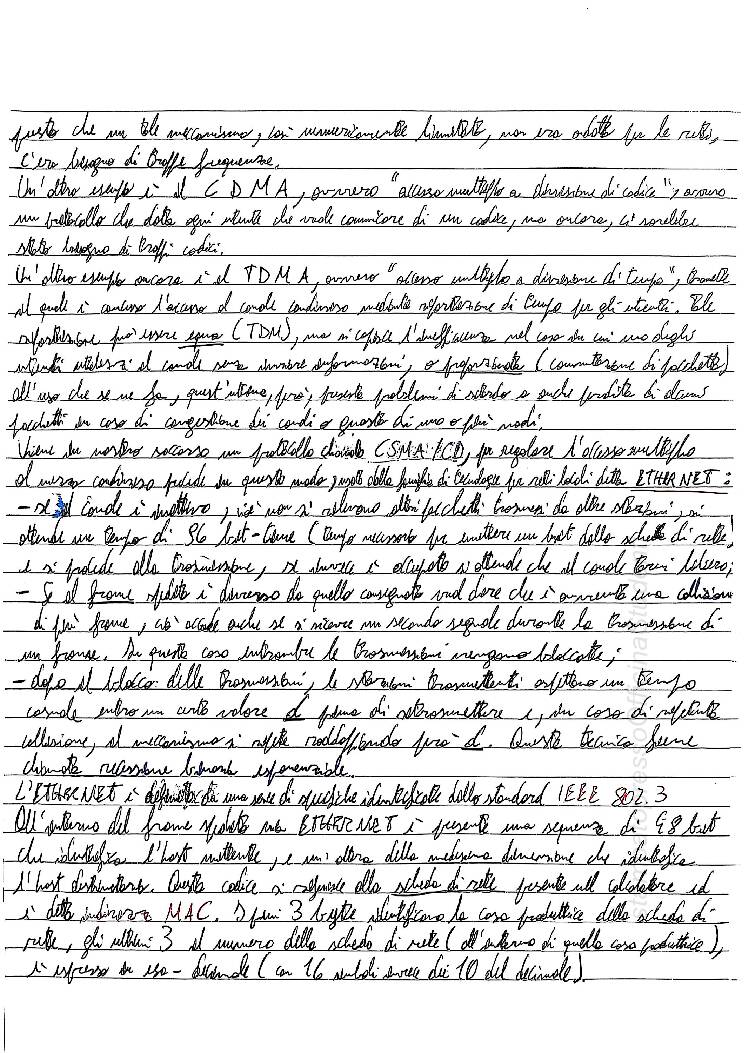 questo che un tale meccanismo, così numericamente limitato, non era adatto per le reti,
c'era bisogno di troppe frequenze.
Un'altro esempio è il CDMA, ovvero "accesso multiplo a divisione di codice", ovvero
un protocollo che dota ogni utente che vuole comunicare di un codice, ma ancora, ci sarebbe
stato bisogno di troppi codici.
Un'altro esempio ancora è il TDMA, ovvero "accesso multiplo a divisione di tempo", tramite
il quale è concesso l'accesso al canale condiviso mediante ripartizione di tempo per gli utenti. Tale
ripartizione può essere equa (TDM), ma si capisce l'inefficienza nel caso in cui uno degli
utenti utilizzi il canale senza inviare informazioni, o proporzionata (commutazione di pacchetto)
all'uso che se ne fa, quest'ultima, però, presenta problemi di ritardo e anche perdita di alcuni
pacchetti in caso di congestione dei canali o guasto di uno o più nodi.
Viene in nostro soccorso un protocollo chiamato CSMA/CD, per regolare l'accesso multiplo
al mezzo condiviso procede in questo modo, usato dalla famiglia di tecnologie per reti locali detta ETHERNET:
- se il canale è inattivo, cioè non si rilevano altri pacchetti trasmessi da altre stazioni, si
attende un tempo di 96 bit-time (tempo necessario per emettere un bit dalla scheda di rete)
e si procede alla trasmissione, se invece è occupato si attende che il canale torni libero;
- Se il frame spedito è diverso da quello consegnato vuol dire che è avvenuta una collisione
di più frame, ciò accade anche se si riceve un secondo segnale durante la trasmissione di
un frame. In questo caso entrambe le trasmissioni vengono bloccate;
- dopo il blocco delle trasmissioni, le stazioni trasmittenti aspettano un tempo
casuale entro un certo valore d prima di ritrasmettere e, in caso di ripetuta
collisione, il meccanismo si ripete raddoppiando però d. Questa tecnica viene
chiamata recessione binaria esponenziale.
L'ETHERNET è definita da una serie di specifiche identificate dallo standard IEEE 802.3
All'interno del frame spedito via ETHERNET è presente una sequenza di 48 bit
che identifica l'host mittente, e un'altra della medesima dimensione che identifica
l'host destinatario. Questo codice si riferisce alla scheda di rete presente nel calcolatore ed
è detto indirizzo MAC. I primi 3 bytes identificano la casa produttrice della scheda di
rete, gli ultimi 3 il numero della scheda di rete (all'interno di quella casa produttrice),
è espresso in esa-decimale (con 16 simboli invece dei 10 del decimale).